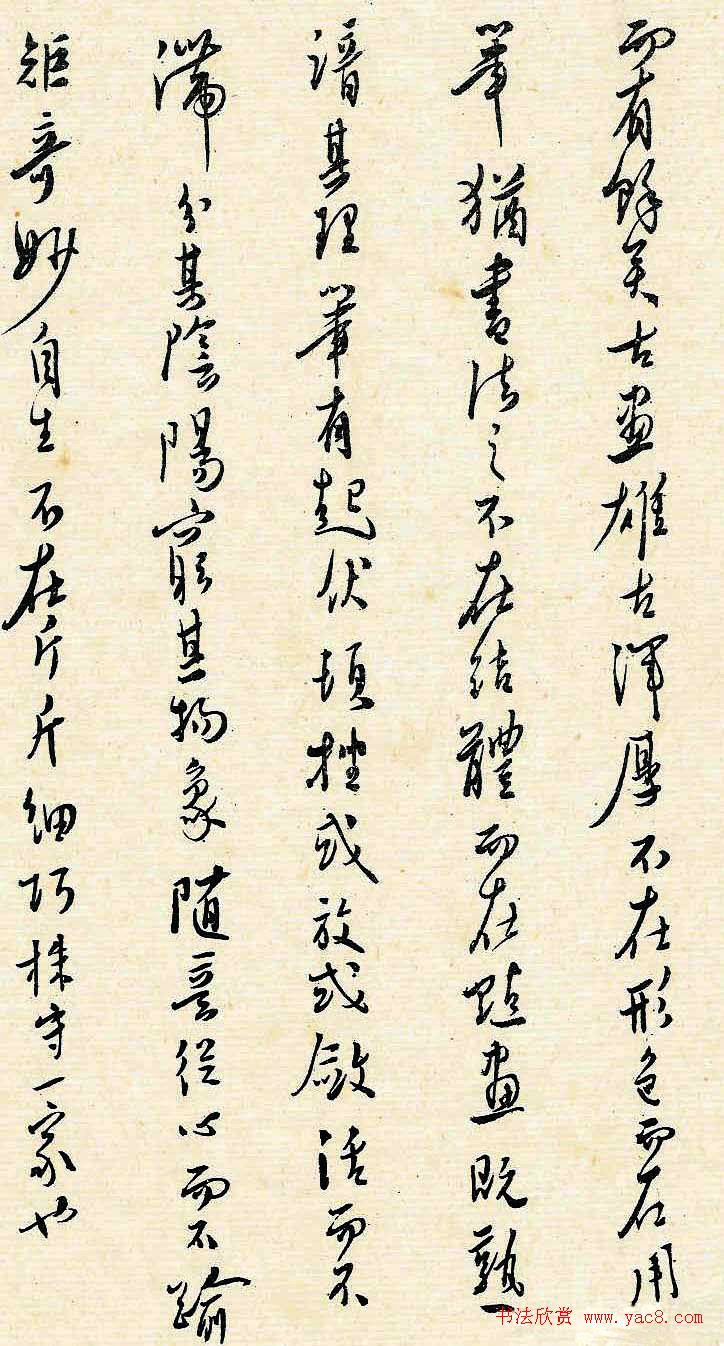 而有餘美古畫雄古渾厚不在形色而在用
筆猶書法之不在結體而在點畫既熟
諳其理筆有起伏頓挫或放或斂活而不
滯分其陰陽窮其物象隨意從心而不踰
矩奇妙自生不在斤斤細巧株守一家也
书法欣赏 www.yac8.com